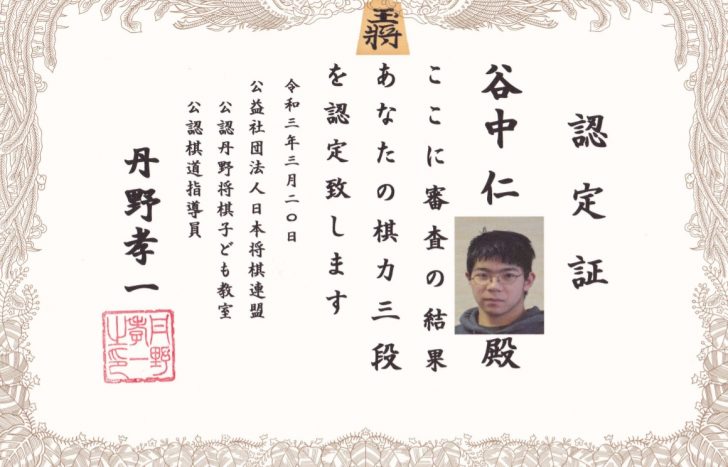 玉將
認定証
谷中仁殿
ここに審査の結果
あなたの棋力三段
を認定致します
令和三年三月二〇日
公益社団法人日本将棋連盟
公認丹野将棋子ども教室
公認棋道指導員
丹野孝一
丹野
孝一
之印